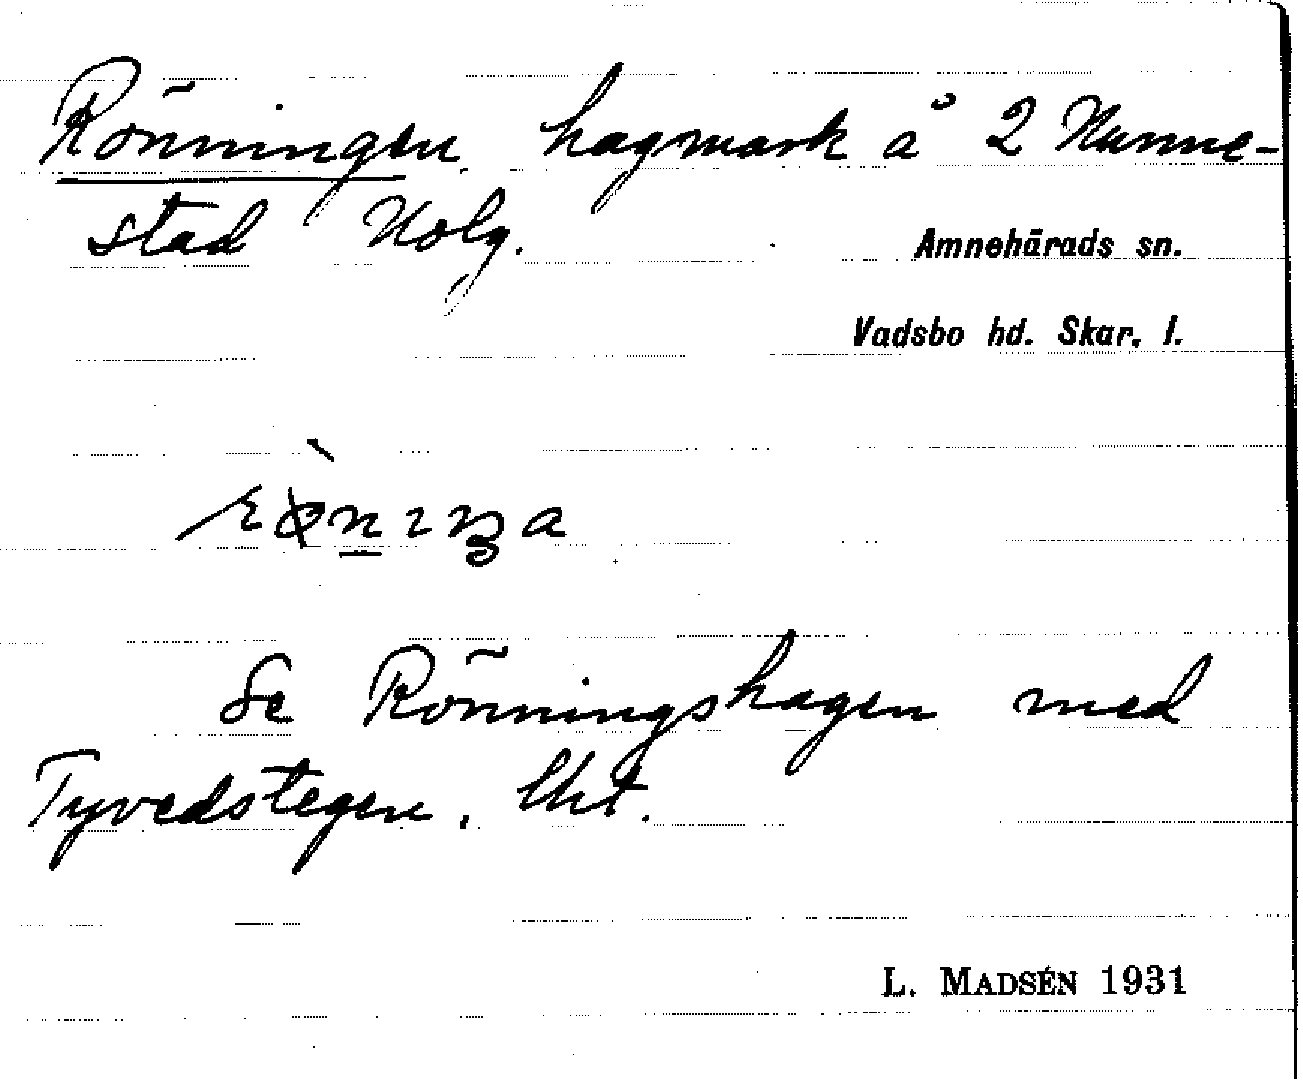 Rönningen, hagmark å 2 Nunne-
stad Nolg.
Amnehärads sn.
Vadsbo hd. Skar. l.
Se Rönningshagen med
Tyvedstegen.
L. MADSÉN 1931